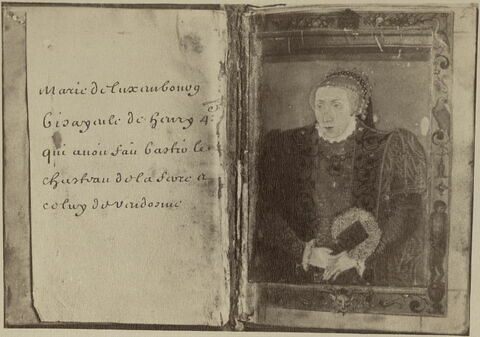 Marie de Luxembourg
bisayeule de henry 4e
qui avoit fait bastir le
chasteau de la fere et
celuy de vendosme